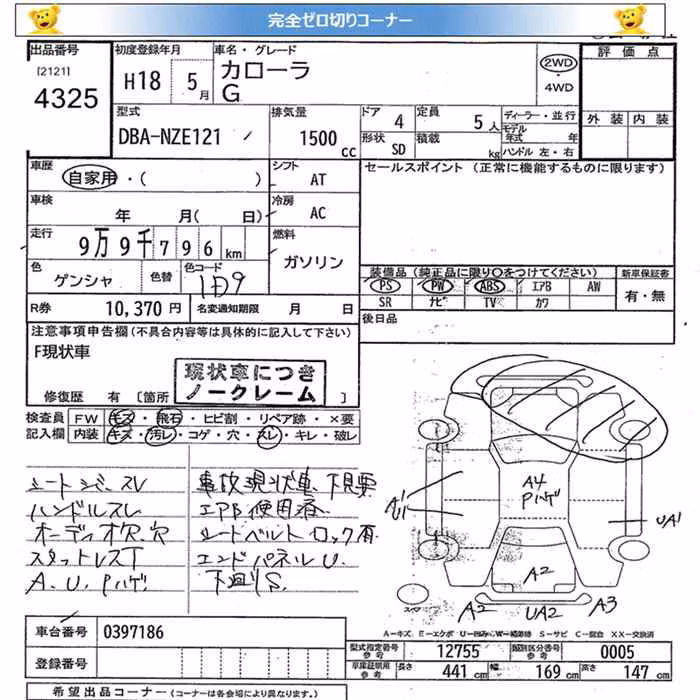 完全ゼロ切りコーナー
出品番号
[2121]
4325
初度登録年月
H18 5月
車名・グレード
カローラ
G
2WD
・
4WD
評価点
外装 内装
型式
DBA-NZE121
排気量
1500 CC
ドア 4
形状 SD
定員 5人
積載 kg
ディーラー・並行
モデル年式 年
ハンドル 左・右
車歴
自家用・( )
シフト
AT
セールスポイント (正常に機能するものに限ります)
車検
年 月( 日)
冷房
AC
走行
9万9千796km
燃料
ガソリン
色
ゲンシャ
色替
色コード
1D9
装備品(純正品に限り○をつけてください)
新車保証書
PS PW ABS エアB AW
SR ナビ TV カワ
有・無
R券 10,370円
名変通知期限 月 日
後日品
注意事項申告欄(不具合内容等は具体的に記入して下さい)
F現状車
現状車につき
ノークレーム
修復歴 有 [箇所 ]
検査員
記入欄
FW キズ・飛石・ヒビ割・リペア跡・×要
内装 キズ・汚レ・コゲ・穴・スレ・キレ・破レ
シートシミ、スレ
ハンドルスレ
オーディオ欠、穴
スタットレスT
A、U、Pハゲ
事故現状車、下見要
エアB使用済
シートベルトロック有
エンドパネルU
下廻りS
A1
U1
A4
Pハゲ
UA1
A2
スペア
A2 UA2 A3
A-キズ E-エクボ U-凹み W-補修跡 S-サビ C-腐蝕 XX-交換済
車台番号 0397186
登録番号
型式指定番号
参考
12755
類別区分番号
参考
0005
車庫証明用
参考
長さ 441cm 幅 169cm 高さ 147cm
希望出品コーナー(コーナーは各会場により異なります。)